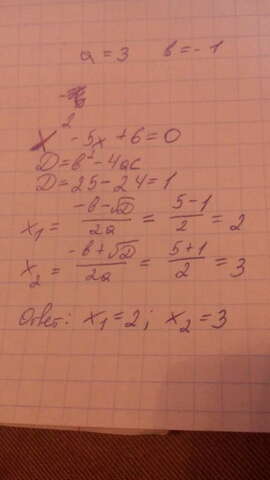 a = 3 в = - 1
x² - 5x + 6 = 0
D = в² - 4ac
D = 25 - 24 = 1
x₁ = (-в - √D)/2a = (5 - 1)/2 = 2
x₂ = (-в + √D)/2a = (5 + 1)/2 = 3
Ответ: x₁ = 2; x₂ = 3